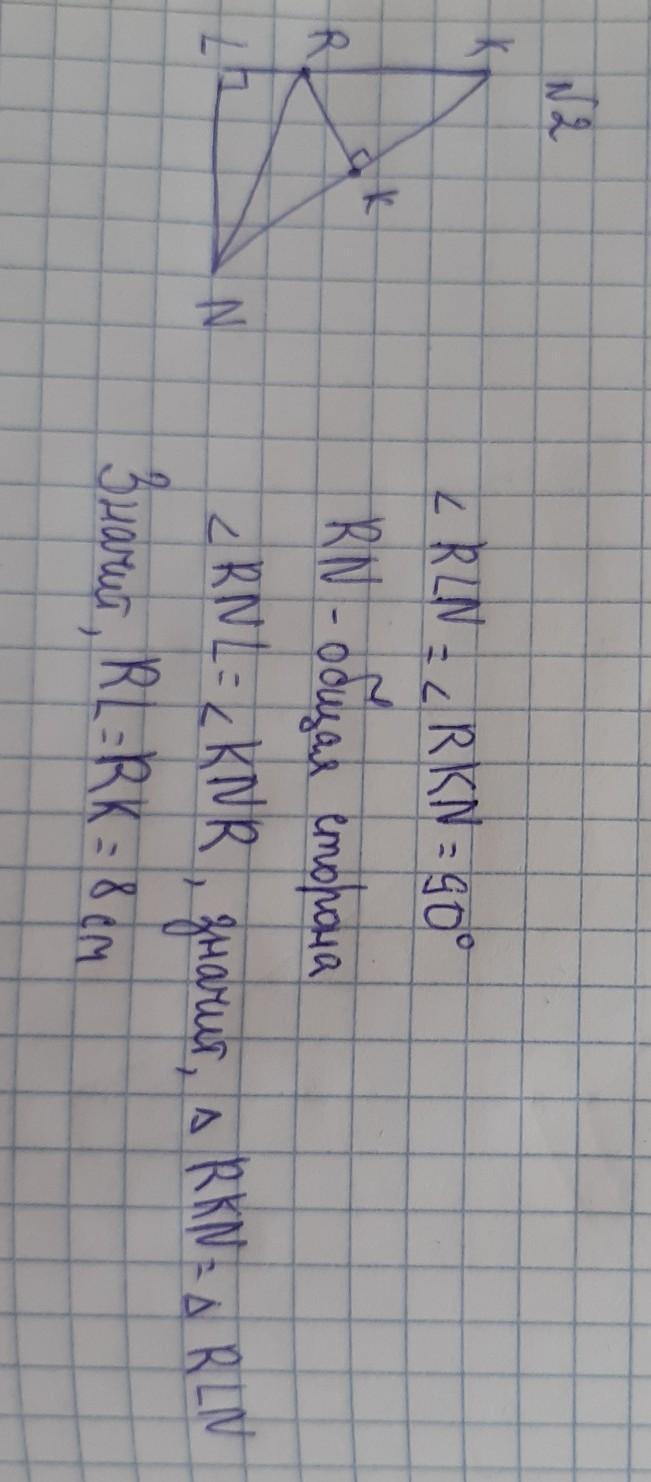 №2
K
R
L
K
N
∠ RLN = ∠ RKN = 90°
RN - общая сторона
∠ RNL = ∠ KNR, значит, △ RKN = △ RLN
Значит, RL = RK = 8 см